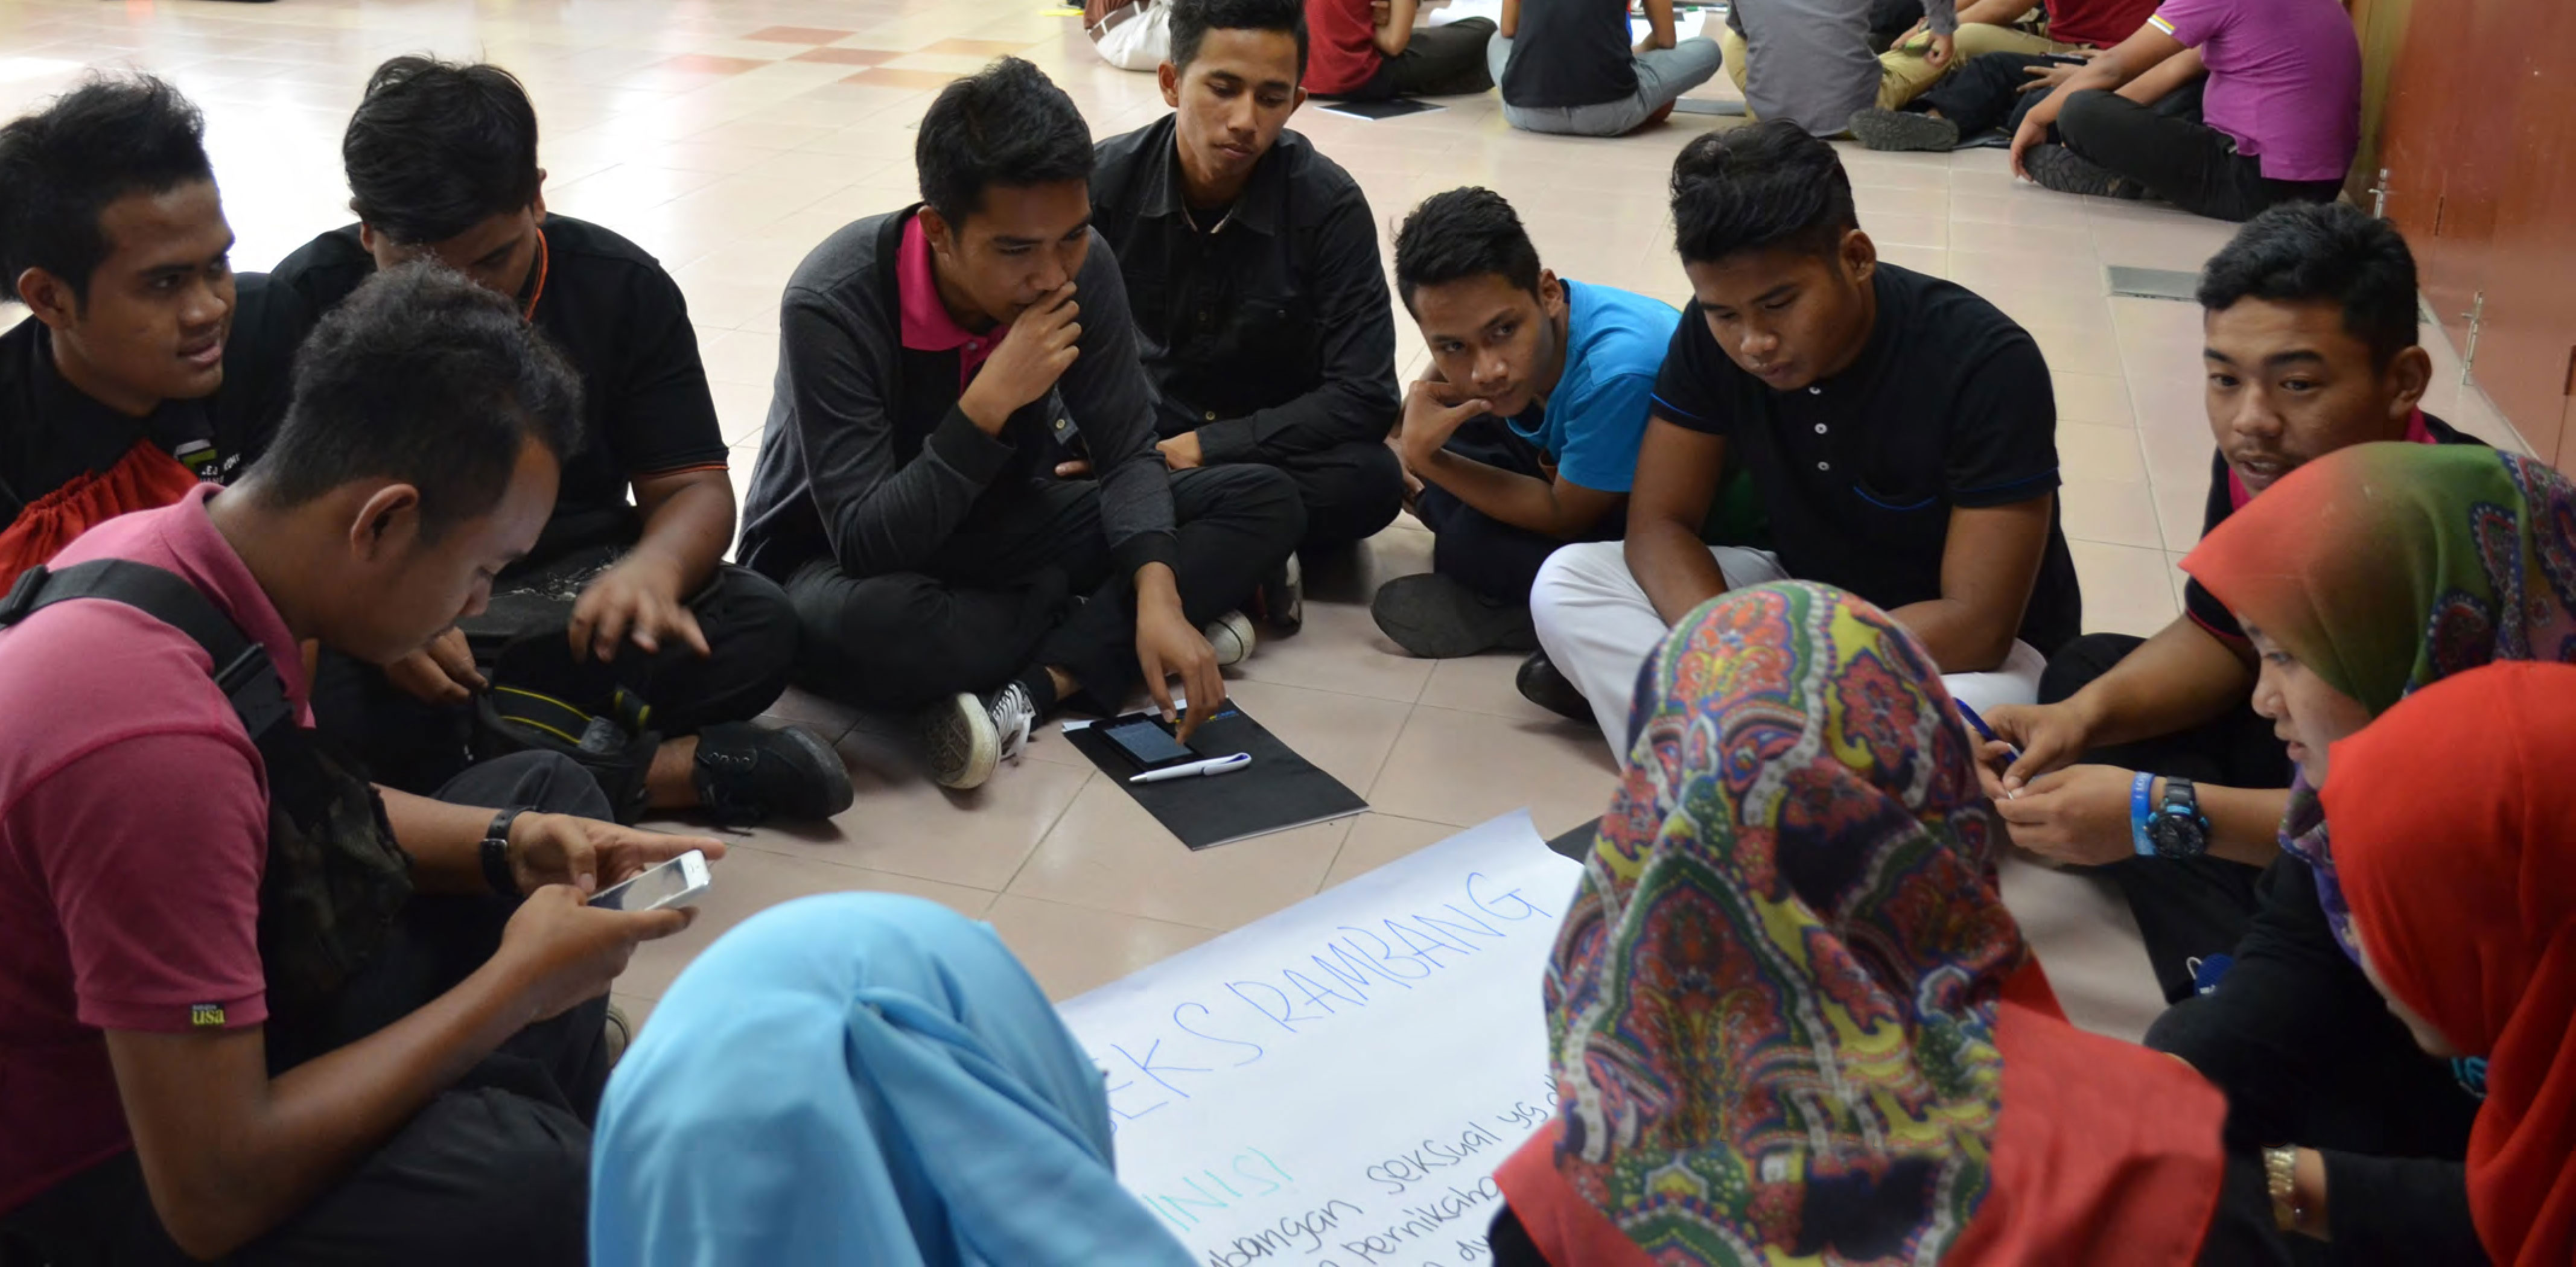 SEKS RAMBANG
INISI
bangan seksual yg
pernikaha
usa